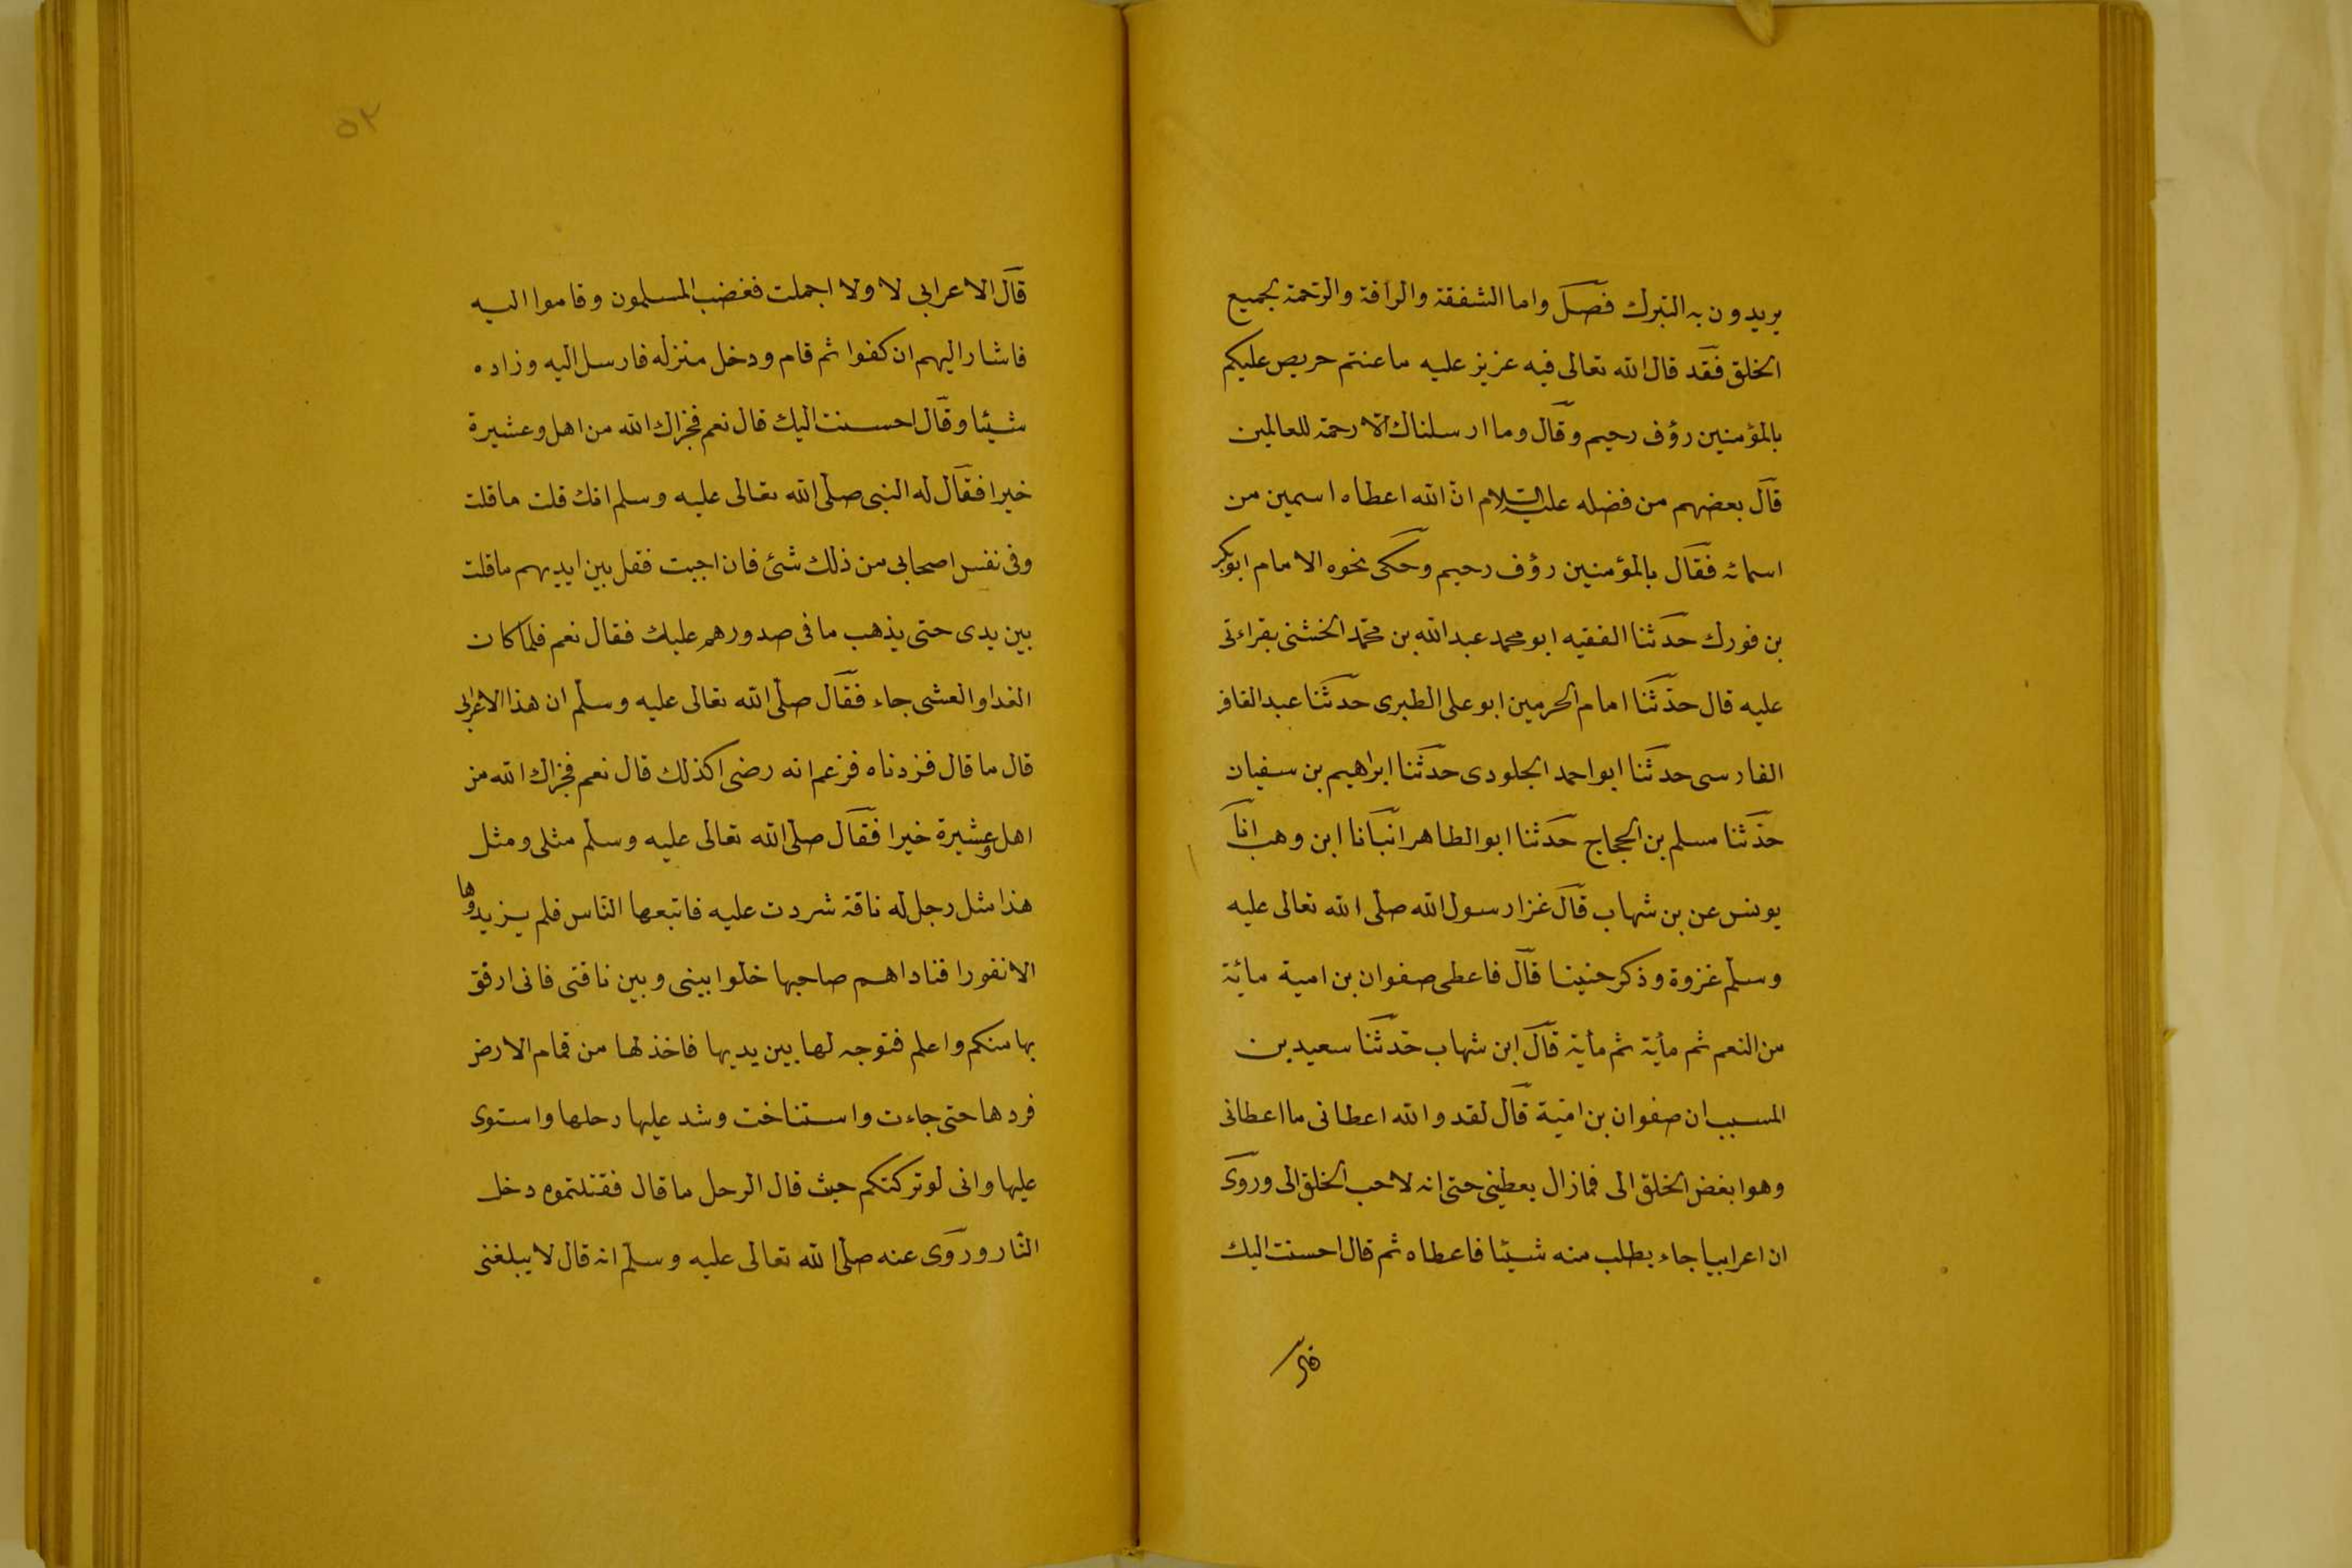 يريدون به التبرك فصل واما الشفقة والرأفة والرحمة لجميع
الخلق فقد قال الله تعالى فيه عزيز عليه ما عنتم حريص عليكم
بالمؤمنين رؤف رحيم وقال وما ارسلناك الا رحمة للعالمين
قال بعضهم من فضله عليه السلام ان الله اعطاه اسمين من
اسمائه فقال بالمؤمنين رؤف رحيم وحكى نحوه الامام ابو بكر
بن فورك حدثنا الفقيه ابو محمد عبد الله بن محمد الخشنى بقراءتى
عليه قال حدثنا امام الحرمين ابو على الطبرى حدثنا عبد الغافر
الفارسى حدثنا ابو احمد الجلودى حدثنا ابراهيم بن سفيان
حدثنا مسلم بن الحجاج حدثنا ابو الطاهر انبانا ابن وهب انا
يونس عن بن شهاب قال غزا رسول الله صلى الله تعالى عليه
وسلم غزوة وذكر حنينا قال فاعطى صفوان بن امية مائة
من النعم ثم مأية ثم مأية قال ابن شهاب حدثنا سعيد بن
المسيب ان صفوان بن امية قال لقد والله اعطانى ما اعطانى
وهو ابغض الخلق الى فمازال يعطينى حتى انه لاحب الخلق الى وروى
ان اعرابيا جاء يطلب منه شيئا فاعطاه ثم قال احسنت اليك
قال
٥٢
قال الاعرابى لا ولا اجملت فغضب المسلمون وقاموا اليه
فاشار اليهم ان كفوا ثم قام ودخل منزله فارسل اليه وزاده
شيئا وقال احسنت اليك قال نعم فجزاك الله من اهل وعشيرة
خيرا فقال له النبى صلى الله تعالى عليه وسلم انك قلت ماقلت
وفى نفس اصحابى من ذلك شئ فان اجبت فقل بين ايديهم ماقلت
بين يدى حتى يذهب ما فى صدورهم عليك فقال نعم فلما كان
الغد او العشى جاء فقال صلى الله تعالى عليه وسلم ان هذا الاعرابى
قال ما قال فزدناه فزعم انه رضى اكذلك قال نعم فجزاك الله من
اهل وعشيرة خيرا فقال صلى الله تعالى عليه وسلم مثلى ومثل
هذا مثل رجل له ناقة شردت عليه فاتبعها الناس فلم يزيدوها
الا نفورا فناداهم صاحبها خلوا بينى وبين ناقتى فانى ارفق
بها منكم واعلم فتوجه لها بين يديها فاخذ لها من قمام الارض
فردها حتى جاءت واستناخت وشد عليها رحلها واستوى
عليها وانى لو تركتكم حيث قال الرجل ما قال فقتلتموه دخل
النار وروى عنه صلى الله تعالى عليه وسلم انه قال لا يبلغنى